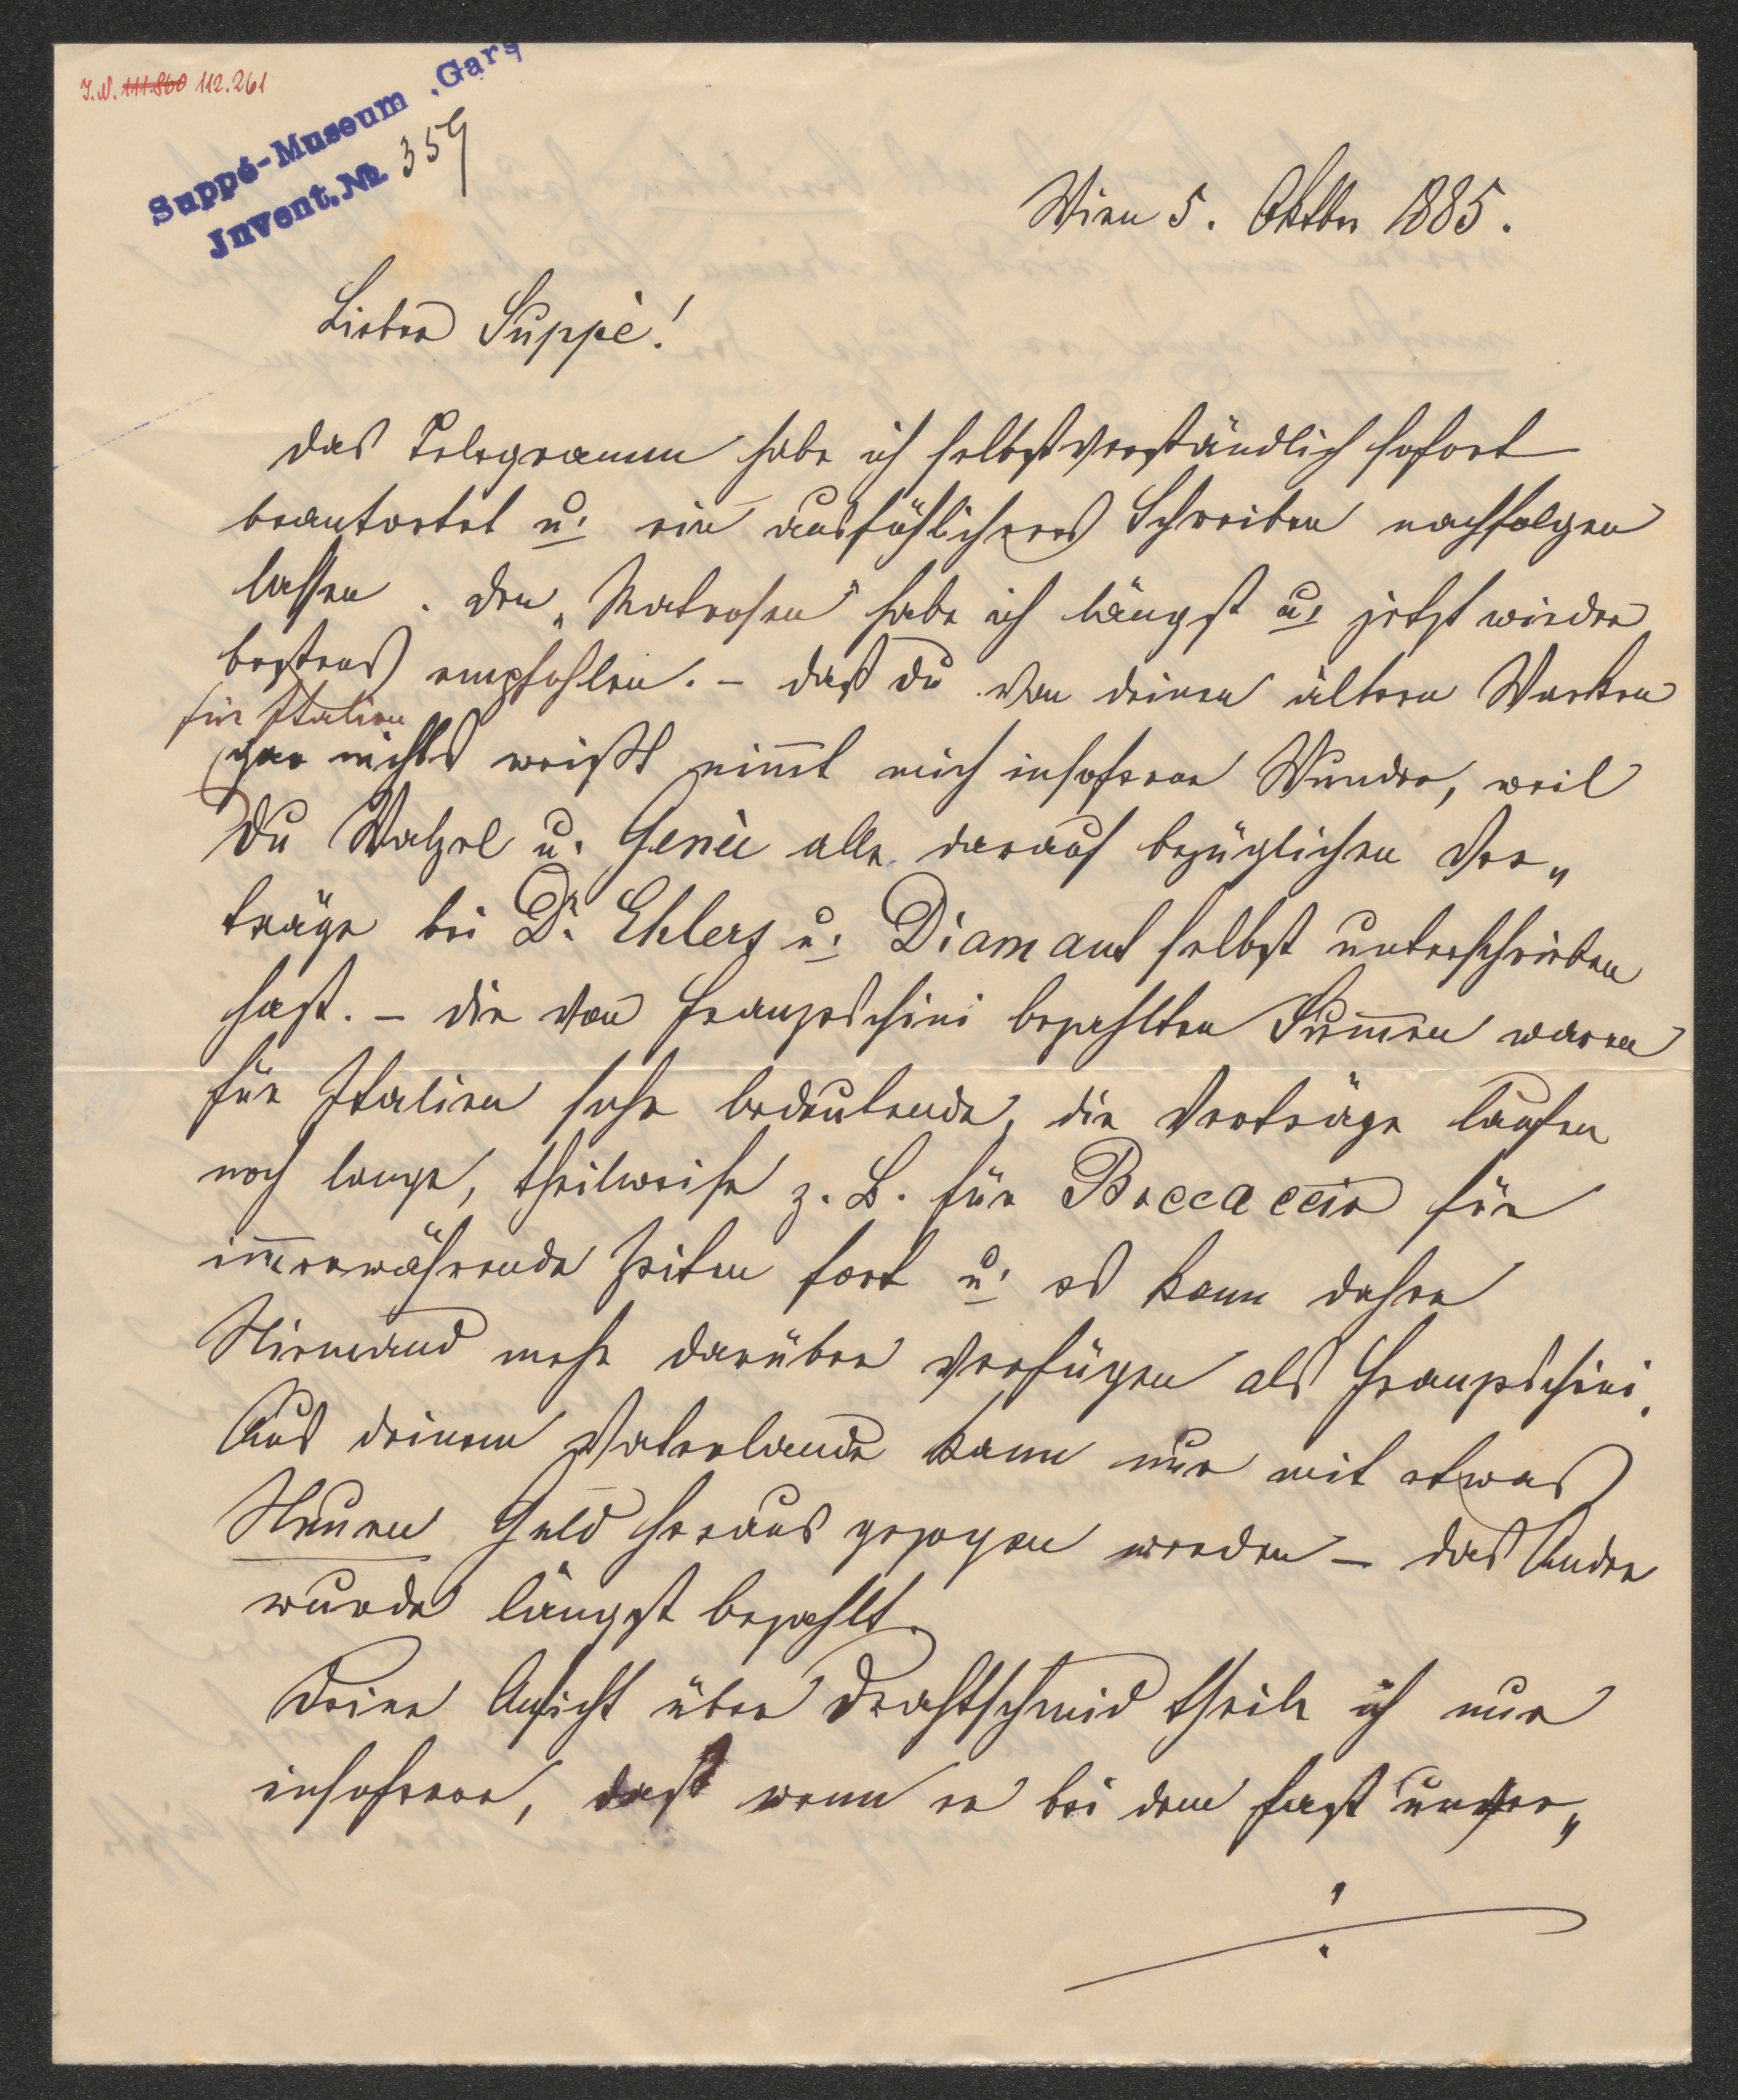 J.N. 111.860 112.261
Suppé-Museum, Gars
Invent. No. 359
Wien 5. Oktbr 1885.
Lieber Suppè!
Das Telegramm habe ich selbstverständlich sofort
beantortet u. ein ausfühlicheres Schreiben nachfolgen
lassen. Den „Matrosen" habe ich längst u. jetzt wieder
bestens empfohlen. – Daß Du von deinen ältern Werken
für Italien
gar nichts weißt nim̅t mich insoferne Wunder, weil
Du Walzel u. Genèe alle darauf bezüglichen Ver„
träge bei Dr. Ehlers u. Diamant selbst unterschrieben
hast. – Die von Franzeschini bezahlten Sum̅en waren
für Italien sehr bedeutende, die Verträge laufen
noch lange, theilweise z. B. für Boccaccio für
im̅erwährende Zeiten fort u. es kann daher
Niemand mehr darüber verfügen als Franzeschini.
Aus deinem Vaterlande kann nur mit etwas
Neuen Geld heraus gezogen werden – das Andre
wurde längst bezahlt.
Deine Ansicht über Drahtschmid theile ich nur
insoferne, daß wenn er bei dem fast unver„
./.